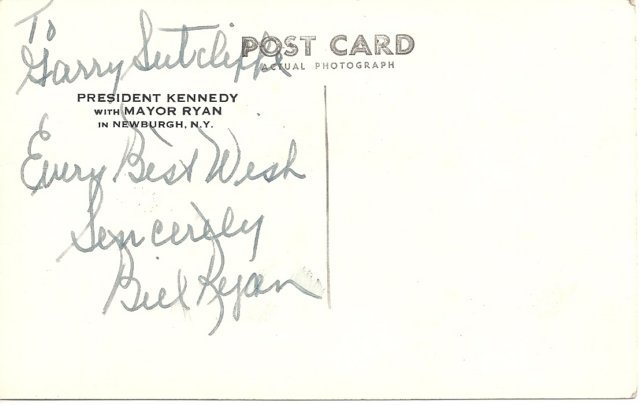 To
Garry Sutcliffe
POST CARD
ACTUAL PHOTOGRAPH
PRESIDENT KENNEDY
WITH MAYOR RYAN
IN NEWBURGH, N.Y.
Every Best Wish
Sincerely
Bill Ryan